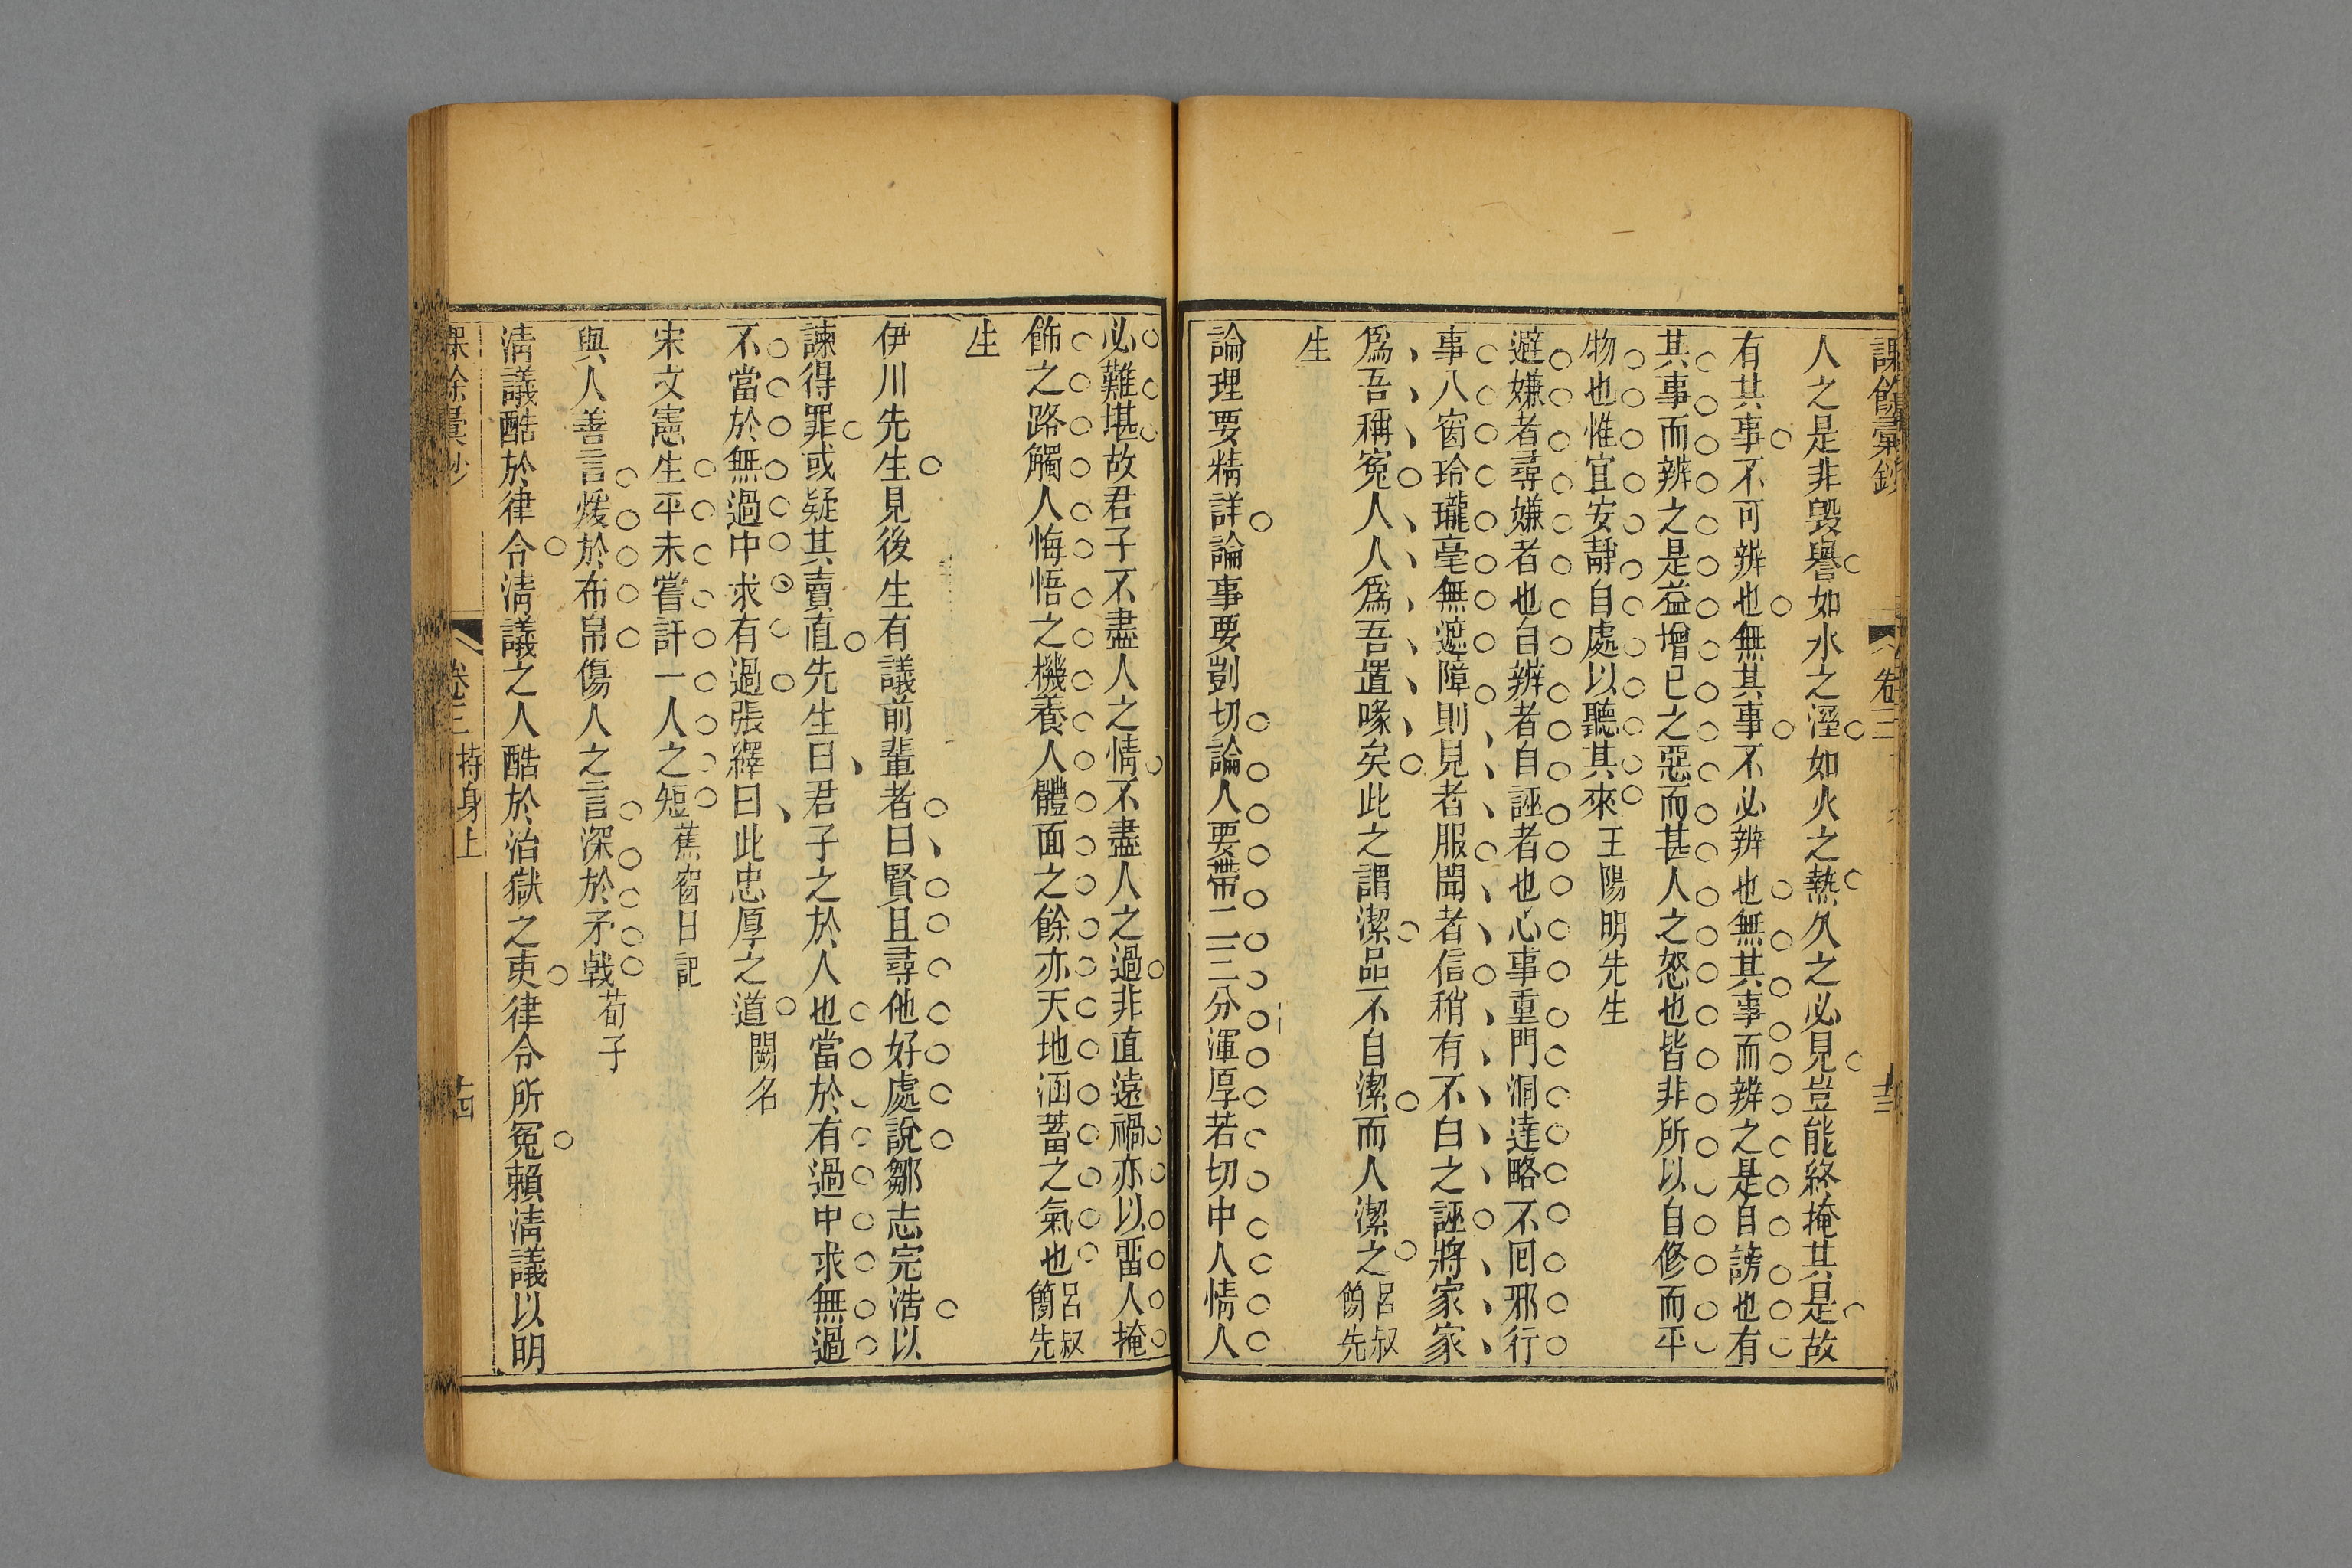 課餘彙鈔
卷三
人之是非毀譽如水之溼如火之熱久之必見豈能終掩其是故
有其事不可辨也無其事不必辨也無其事而辨之是自謗也有
其事而辨之是益增已之惡而甚人之怒也皆非所以自修而平
物也惟宜安靜自處以聽其來王陽明先生
避嫌者尋嫌者也自辨者自誣者也心事重門洞達略不囘邪行
事八窗玲瓏毫無遮障則見者服聞者信稍有不白之誣將家家
爲吾稱寃人人爲吾置喙矣此之謂潔品不自潔而人潔之呂叔簡先
生
論理要精詳論事要剴切論人要帶二三分渾厚若切中人情人
必難堪故君子不盡人之情不盡人之過非直遠禍亦以畱人掩
飾之路觸人悔悟之機養人體面之餘亦天地涵蓄之氣也呂叔簡先
生
伊川先生見後生有議前輩者曰賢且尋他好處說鄒志完浩以
諫得罪或疑其賣直先生曰君子之於人也當於有過中求無過
不當於無過中求有過張繹曰此忠厚之道闕名
宋文憲生平未嘗訐一人之短蕉窗日記
與人善言煖於布帛傷人之言深於矛戟荀子
淸議酷於律令淸議之人酷於治獄之吏律令所寃賴淸議以明
課餘彙鈔
卷三
持身上
十四